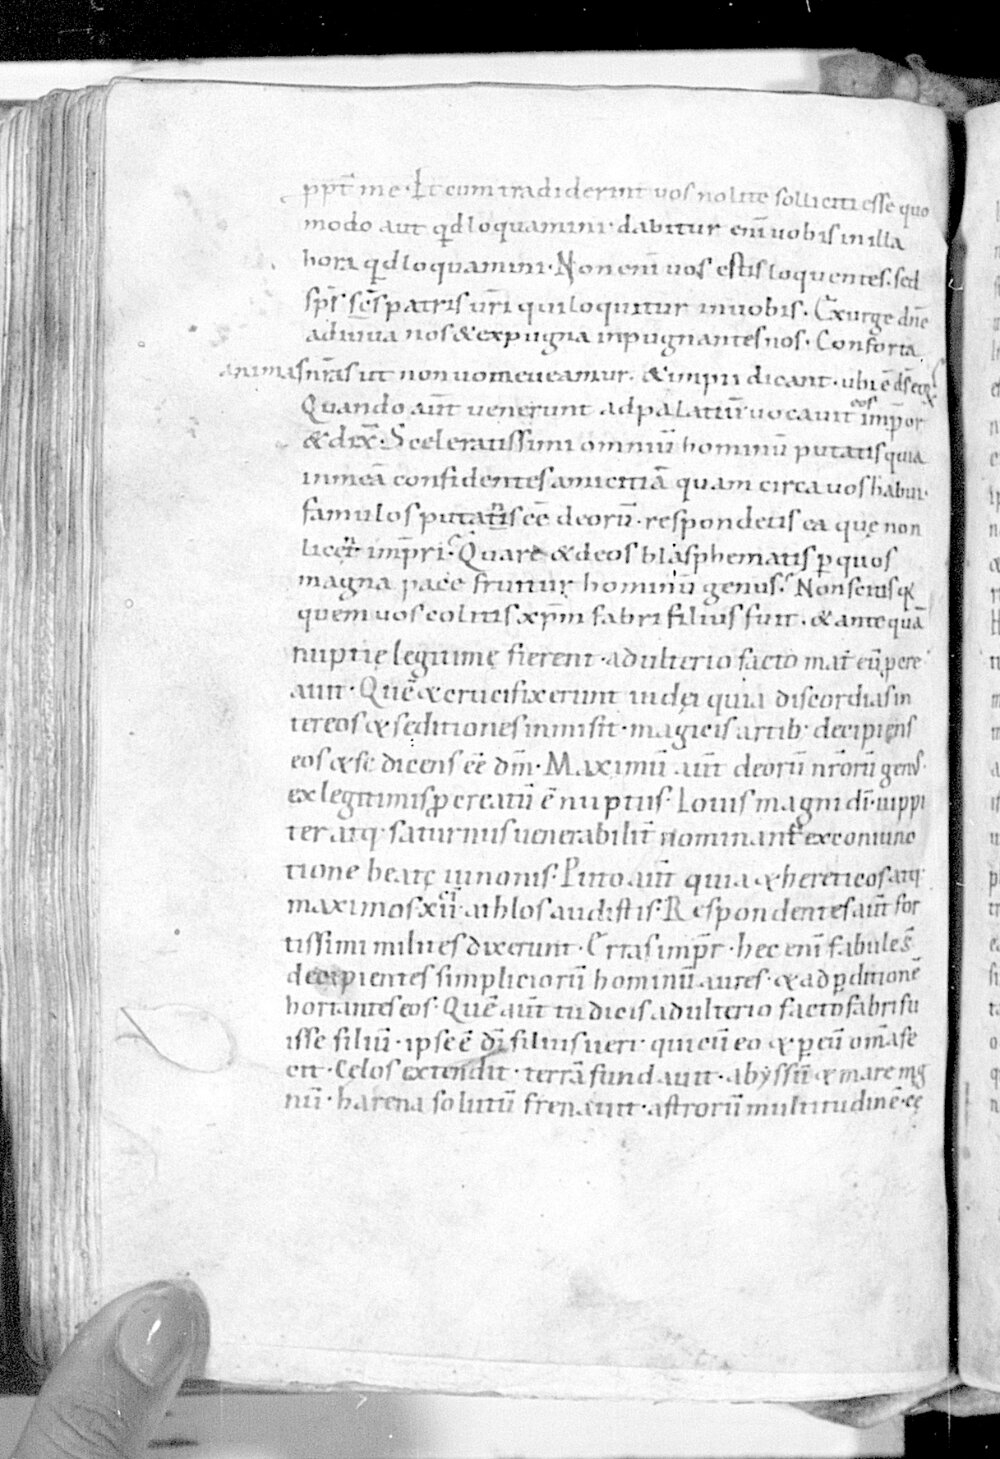 ppt̄ me · Et cum tradiderint uos nolite solliciti esse quo
modo aut qd loquamini · dabitur eni̅ uobis in illa
hora qd loquamini · Non eni̅ uos estis loquentes · sed
sps̅ sc̅s patris ur̅i qui loquitur in uobis · Exurge dn̅e
adiuua nos & expugna inpugnantes nos · Conforta
animas nr̅as ut non uomeueamur · & impii dicant · ubi ē ds̅
Quando aut̅ uenerunt ad palatiu̅ uocauit eos imp̅or
& dix̅ · Sceleratissimi omniu̅ hominu̅ putatis quia
in mea̅ confidentes amicitia̅ quam circa uos habui ·
famulos putatis ee̅ deoru̅ · respondetis ea que non
licet imp̅ri · Quare & deos blasphematis p̱ quos
magna pace fruitur hominu̅ genus · Non scitis q
quem uos colitis xp̅m fabri filius fuit · & ante qua̅
nuptię legitimę fierent · adulterio facto mat̅ eu̅ pepe
rauit · Que̅ & crucifixerunt iudei quia discordias in
ter eos & seditiones inmisit · magicis artib · decipiens
eos & se dicens ee̅ dm̅ · Maximu̅ aut̅ deoru̅ nr̅oru̅ gens ·
ex legitimis p̱creatu̅ ē nuptiis · Iouis magni di̅ · iuppi
ter atq · saturnus uenerabilit̅ nominant̅ ex coniunc
tione beatę iunonis · Puto aut̅ quia & hereticos atq ·
maximos xii athlos audistis · Respondentes aut̅ for
tissimi milites dixerunt · Erras imp̅r · hec eni̅ fabule s̅
decipientes simplicioru̅ hominu̅ aures · & ad p̱ditione̅
hortantes eos · Que̅ aut̅ tu dicis adulterio facto fabri fu
isse filiu̅ · ipse ē di̅ filius ueri · qui cu̅ eo & p̱ eu̅ om̅a fe
cit · Celos extendit · terra̅ fundauit · abyssu̅ & mare mg
nu̅ · harena solutu̅ frenauit · astroru̅ multitudine̅ ·